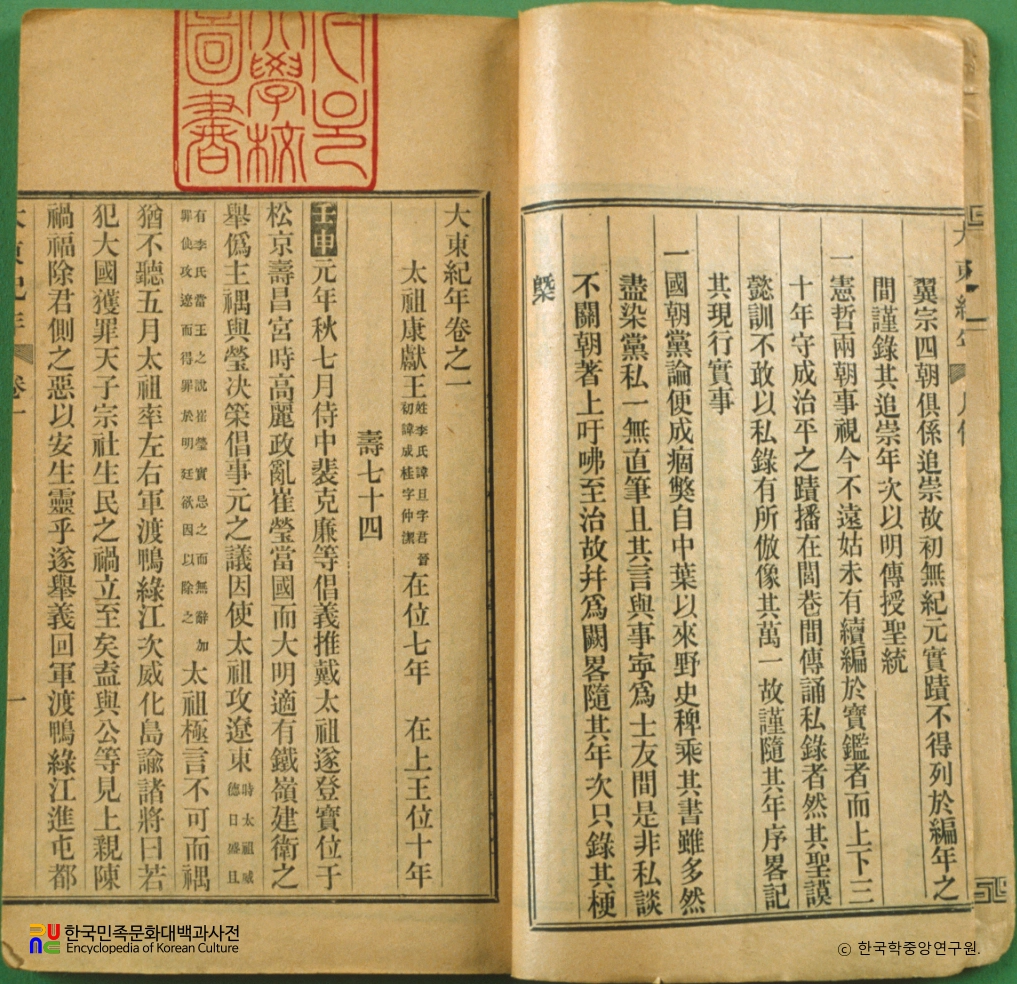 翼宗四朝俱係追崇故初無紀元實蹟不得列於編年之
間謹錄其追崇年次以明傳授聖統
一憲哲兩朝事視今不遠姑未有續編於寶鑑者而上下三
十年守成治平之蹟播在閭巷間傳誦私錄者然其聖謨
懿訓不敢以私錄有所倣像其萬一故謹隨其年序畧記
其現行實事
一國朝黨論便成痼獘自中葉以來野史稗乘其書雖多然
盡染黨私一無直筆且其言與事寧爲士友間是非私談
不關朝著上吁咈至治故幷爲闕畧隨其年次只錄其梗
槩
邑
學校
圖書
大東紀年卷之一
太祖康獻王姓李氏諱旦字君晉初諱成桂字仲潔在位七年 在上王位十年
壽七十四
壬申元年秋七月侍中裴克廉等倡義推戴太祖遂登寶位于
松京壽昌宮時高麗政亂崔瑩當國而大明適有鐵嶺建衛之
舉僞主禑與瑩决策倡事元之議因使太祖攻遼東時太祖威德日盛且
有李氏當王之說崔瑩實忌之而無辭加罪仙攻遼而得罪於明廷欲因以除之太祖極言不可而禑
猶不聽五月太祖率左右軍渡鴨綠江次威化島諭諸將曰若
犯大國獲罪天子宗社生民之禍立至矣盍與公等見上親陳
禍福除君側之惡以安生靈乎遂舉義回軍渡鴨綠江進屯都
大東紀年 卷一
一
한국민족문화대백과사전
Encyclopedia of Korean Culture
© 한국학중앙연구원.